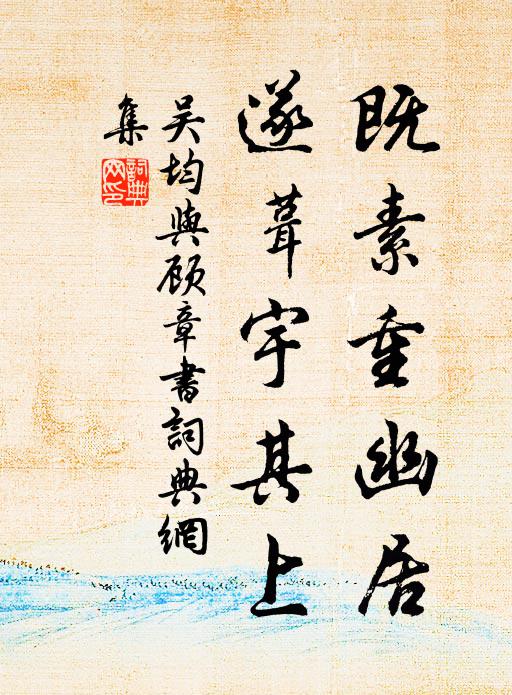 既素重幽居
遂葺宇其上
吴均與顾章書詞典網
集
詞典
网印